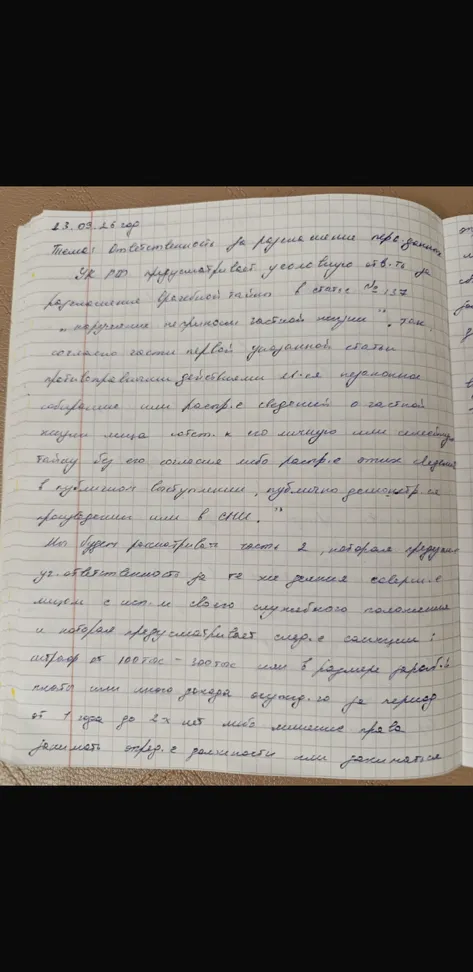 23.03.26 год
Тема: Ответственность за разглашение перс. данных
УК РФ предусматривает уголовную отв.ть за
разглашение врачебной тайны в статье № 137
„нарушение неприкосн частной жизни", так
согласно части первой указанной статьи
противоправными действиями яв-ся незаконное
собирание или распр.е сведений о частной
жизни лица сост. к его личную или семейную
тайну без его согласия либо распр.е этих сведений
в публичном выступлении, публично демонстр.ся
произведении или в СМИ."
Мы будем рассматривать часть 2, которая предусм
уг. ответственность за те же деяния соверш.е
лицем с исп.м своего служебного положения
и которая предусматривает след.е санкции:
штраф от 100 тыс – 300 тыс или в размере заработ.й
платы или иного дохода осужд.го за период
от 1 года до 2х лет либо лишение права
занимать опред.е должности или заниматься